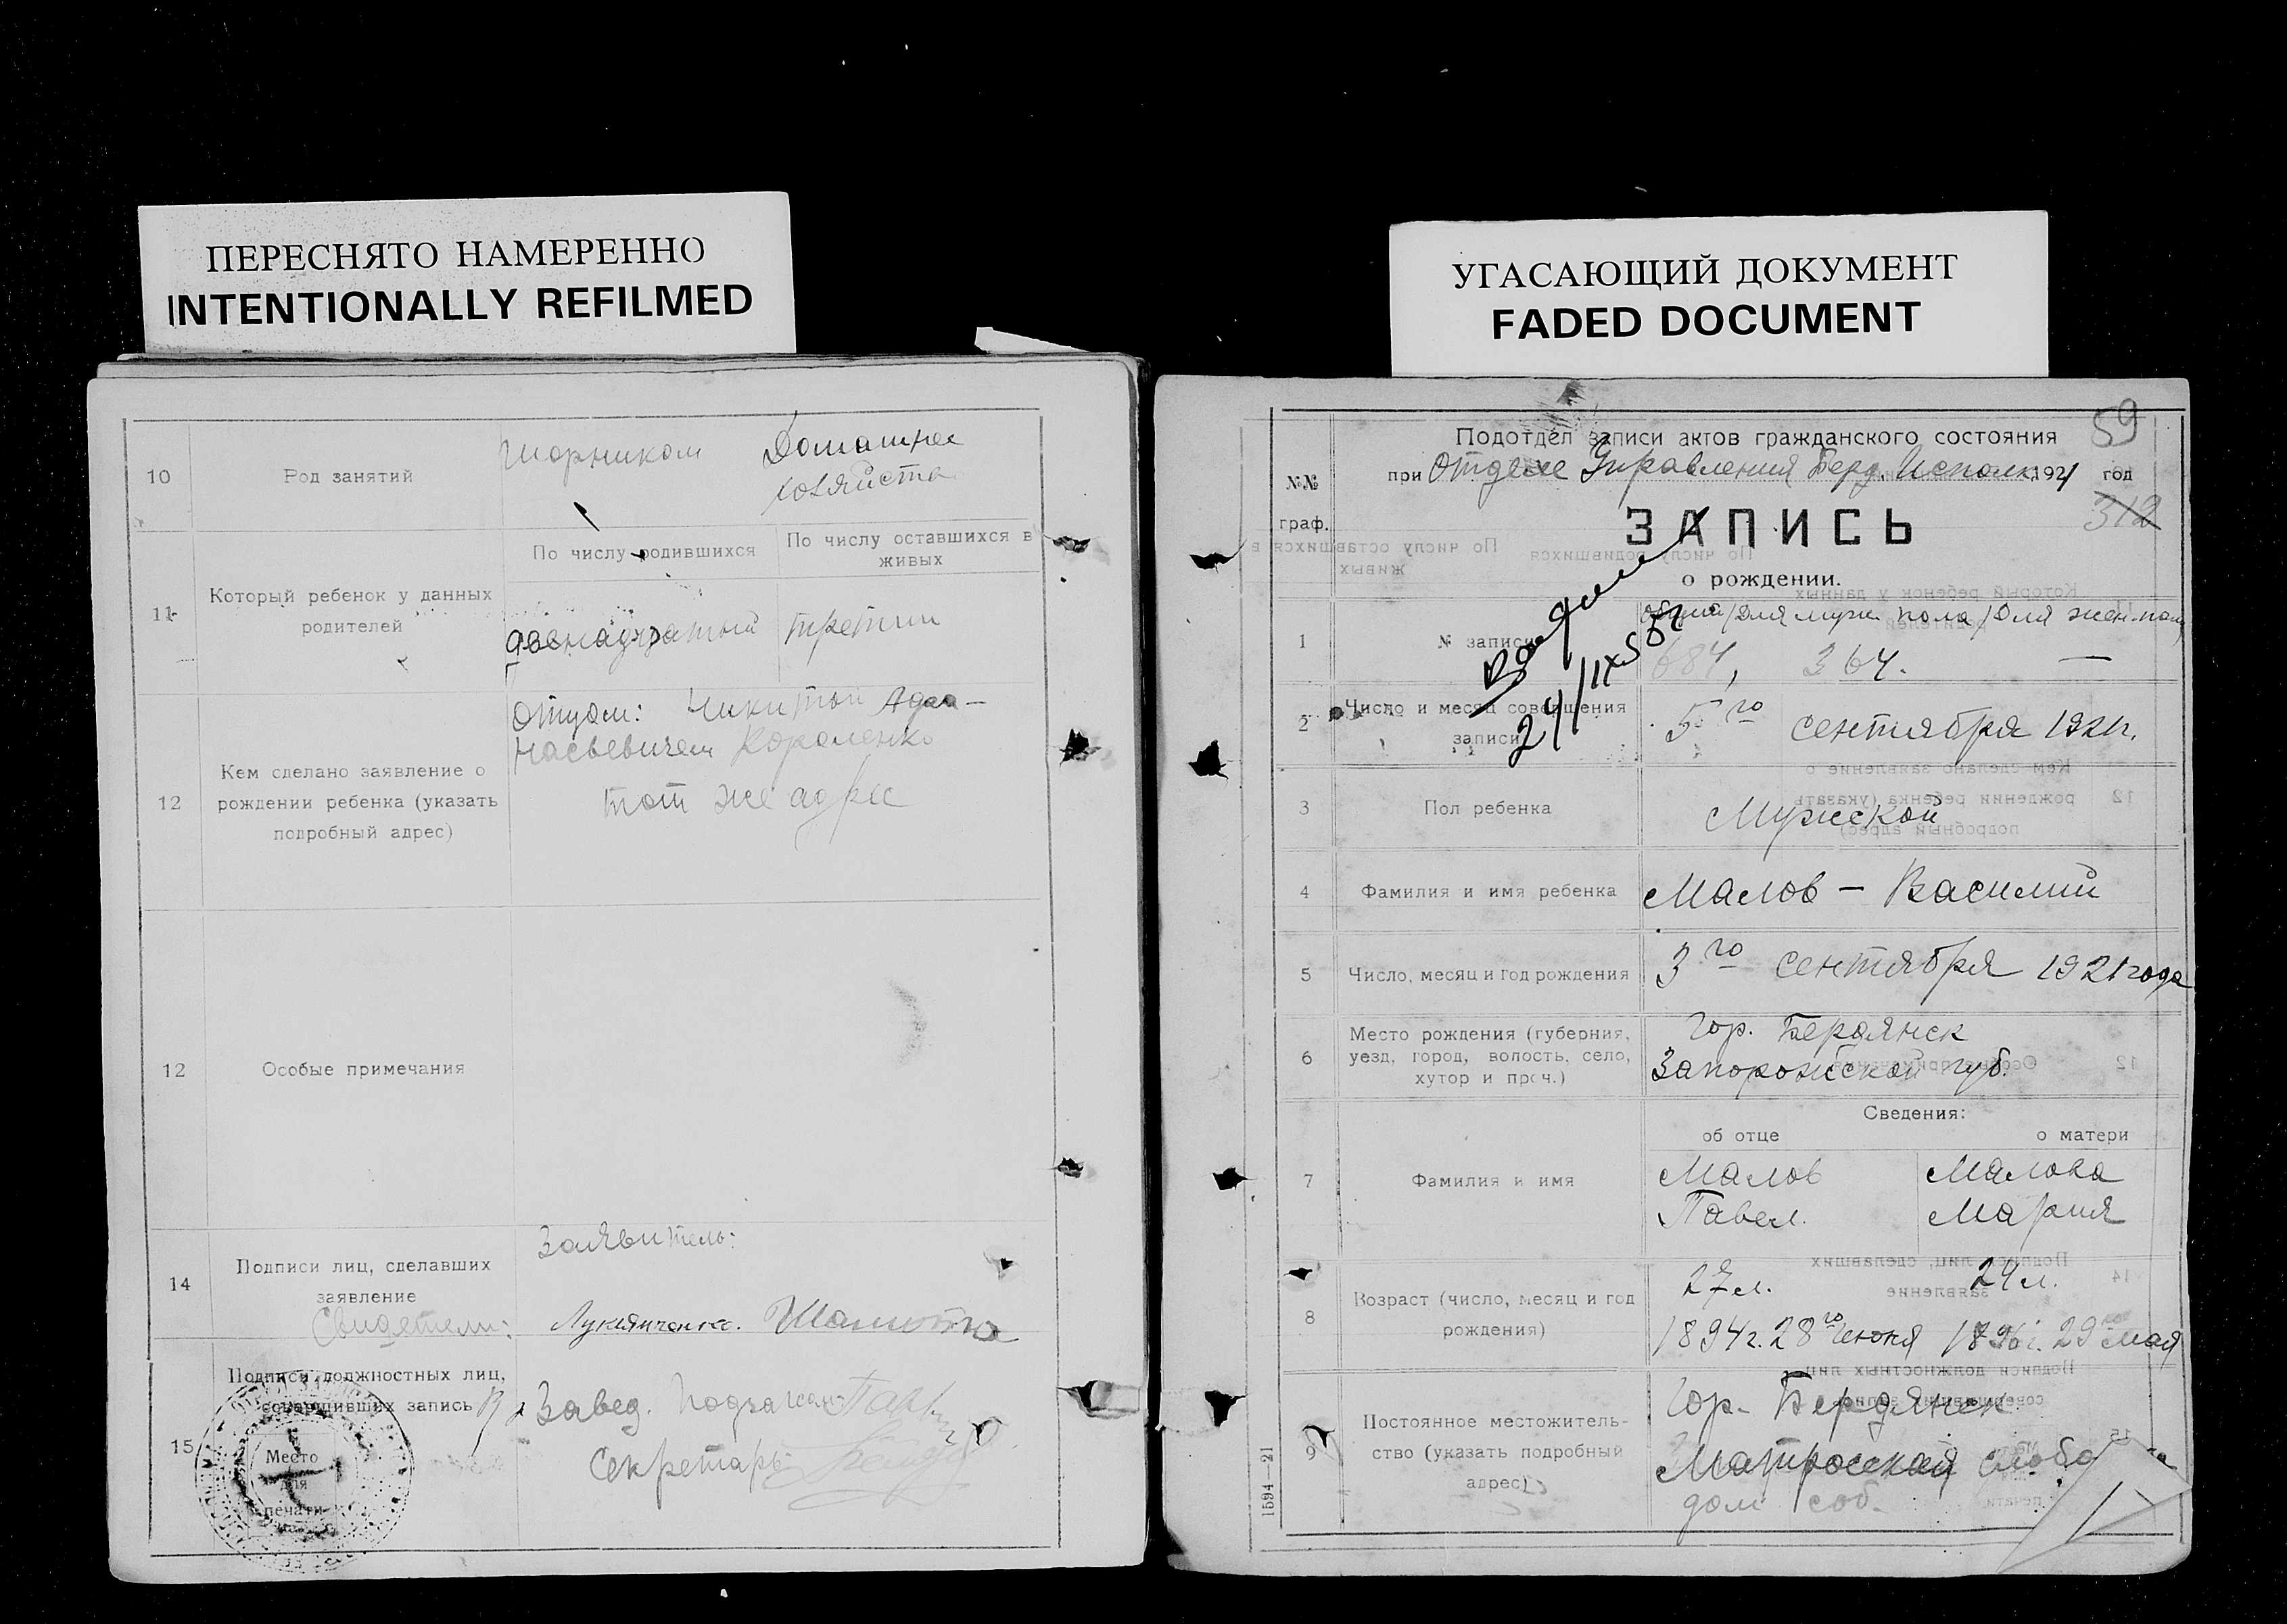 ПЕРЕСНЯТО НАМЕРЕННО
INTENTIONALLY REFILMED
10
Род занятий
Шорником
Домашнее
хозяйство
11
Который ребенок у данных
родителей
По числу родившихся
По числу оставшихся в
живых
двенадцатый
третий
12
Кем сделано заявление о
рождении ребенка (указать
подробный адрес)
Отцом: Никитой
Короленко
тот же адрес
12
Особые примечания
14
Подписи лиц, сделавших
заявление
Свидетели:
Заявитель:
Лукьянченко.
15
Подписи должностных лиц,
совершивших запись
Место
для
печати
Завед.
Секретарь
УГАСАЮЩИЙ ДОКУМЕНТ
FADED DOCUMENT
59
Подотдел записи актов гражданского состояния
при Отделе Управления Берд. Исполк. 1921 год
№№
граф.
312
ЗАПИСЬ
о рождении.
1
№ записи
общий/Для муж. пола/Для жен. пола
684, 364. —
2
Число и месяц совершения
записи
5го сентября 1921г.
3
Пол ребенка
Мужской
4
Фамилия и имя ребенка
Малов — Василий
5
Число, месяц и год рождения
3го сентября 1921 года
6
Место рождения (губерния,
уезд, город, волость, село,
хутор и проч.)
Гор. Бердянск
Запорожской губ.
Сведения:
об отце
о матери
7
Фамилия и имя
Малов
Павел.
Малова
Мария
8
Возраст (число, месяц и год
рождения)
27 л.
24 л.
1894г. 28го июня
29 мая
9
Постоянное местожитель-
ство (указать подробный
адрес)
Гор. Бердянск
Матросская слобо
дом соб.
1594—21